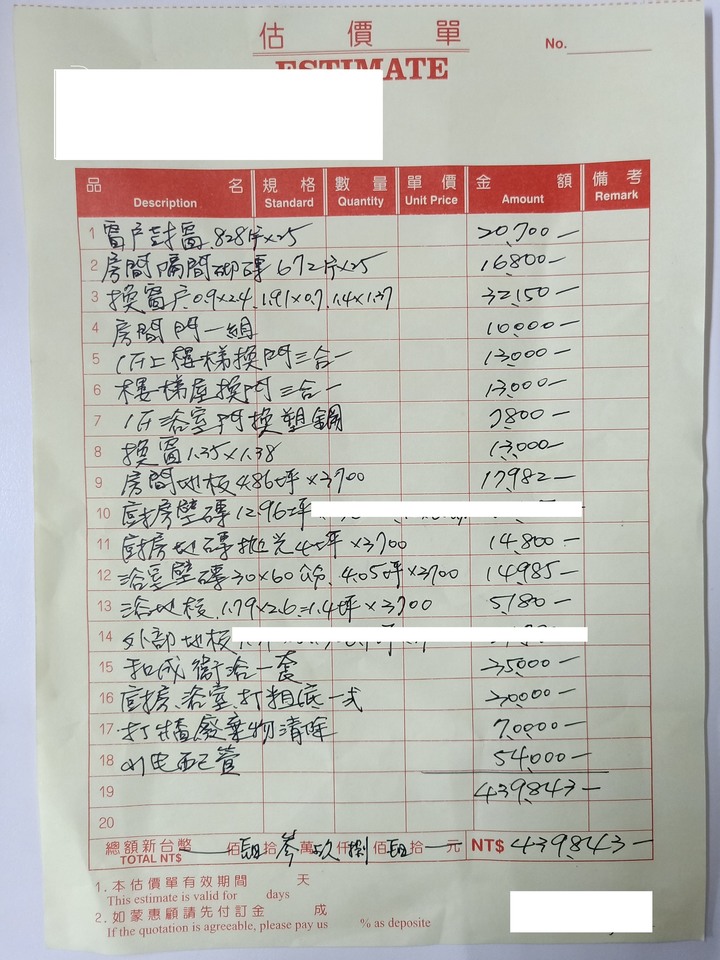 估價單
No.
ESTIMATE
品名 規格 數量 單價 金額 備考
Description Standard Quantity Unit Price Amount Remark
1 窗戶封窗 828片×25 20,700—
2 房間隔間砌磚 672片×25 16800—
3 換窗戶 0.9×2.4, 1.91×0.7, 1.4×1.37 32,150—
4 房間門一組 10,000—
5 1F上樓梯換門三合一 13,000—
6 樓梯屋換門三合一 13,000—
7 1F浴室門換塑鋼 7800—
8 換窗 1.35×1.38 13,000—
9 房間地板 4.86坪×3700 17,982—
10 廚房壁磚 12.96坪
11 廚房地磚拋光 4坪×3700 14,800—
12 浴室壁磚 30×60公分, 4.05坪×3700 14,985—
13 浴地板, 1.79×2.6=1.4坪×3700 5,180—
14 外部地板
15 和成衛浴一套 35,000—
16 廚房、浴室、打粗底一式 30,000—
17 打牆廢棄物清除 70,000—
18 水电配管 54,000—
19 439,843—
20
總額新台幣 佰肆拾參萬玖仟捌佰肆拾 元 NT$ 439,843—
TOTAL NT$
1. 本估價單有效期間 天
This estimate is valid for days
2. 如蒙惠顧請先付訂金 成
If the quotation is agreeable, please pay us % as deposite